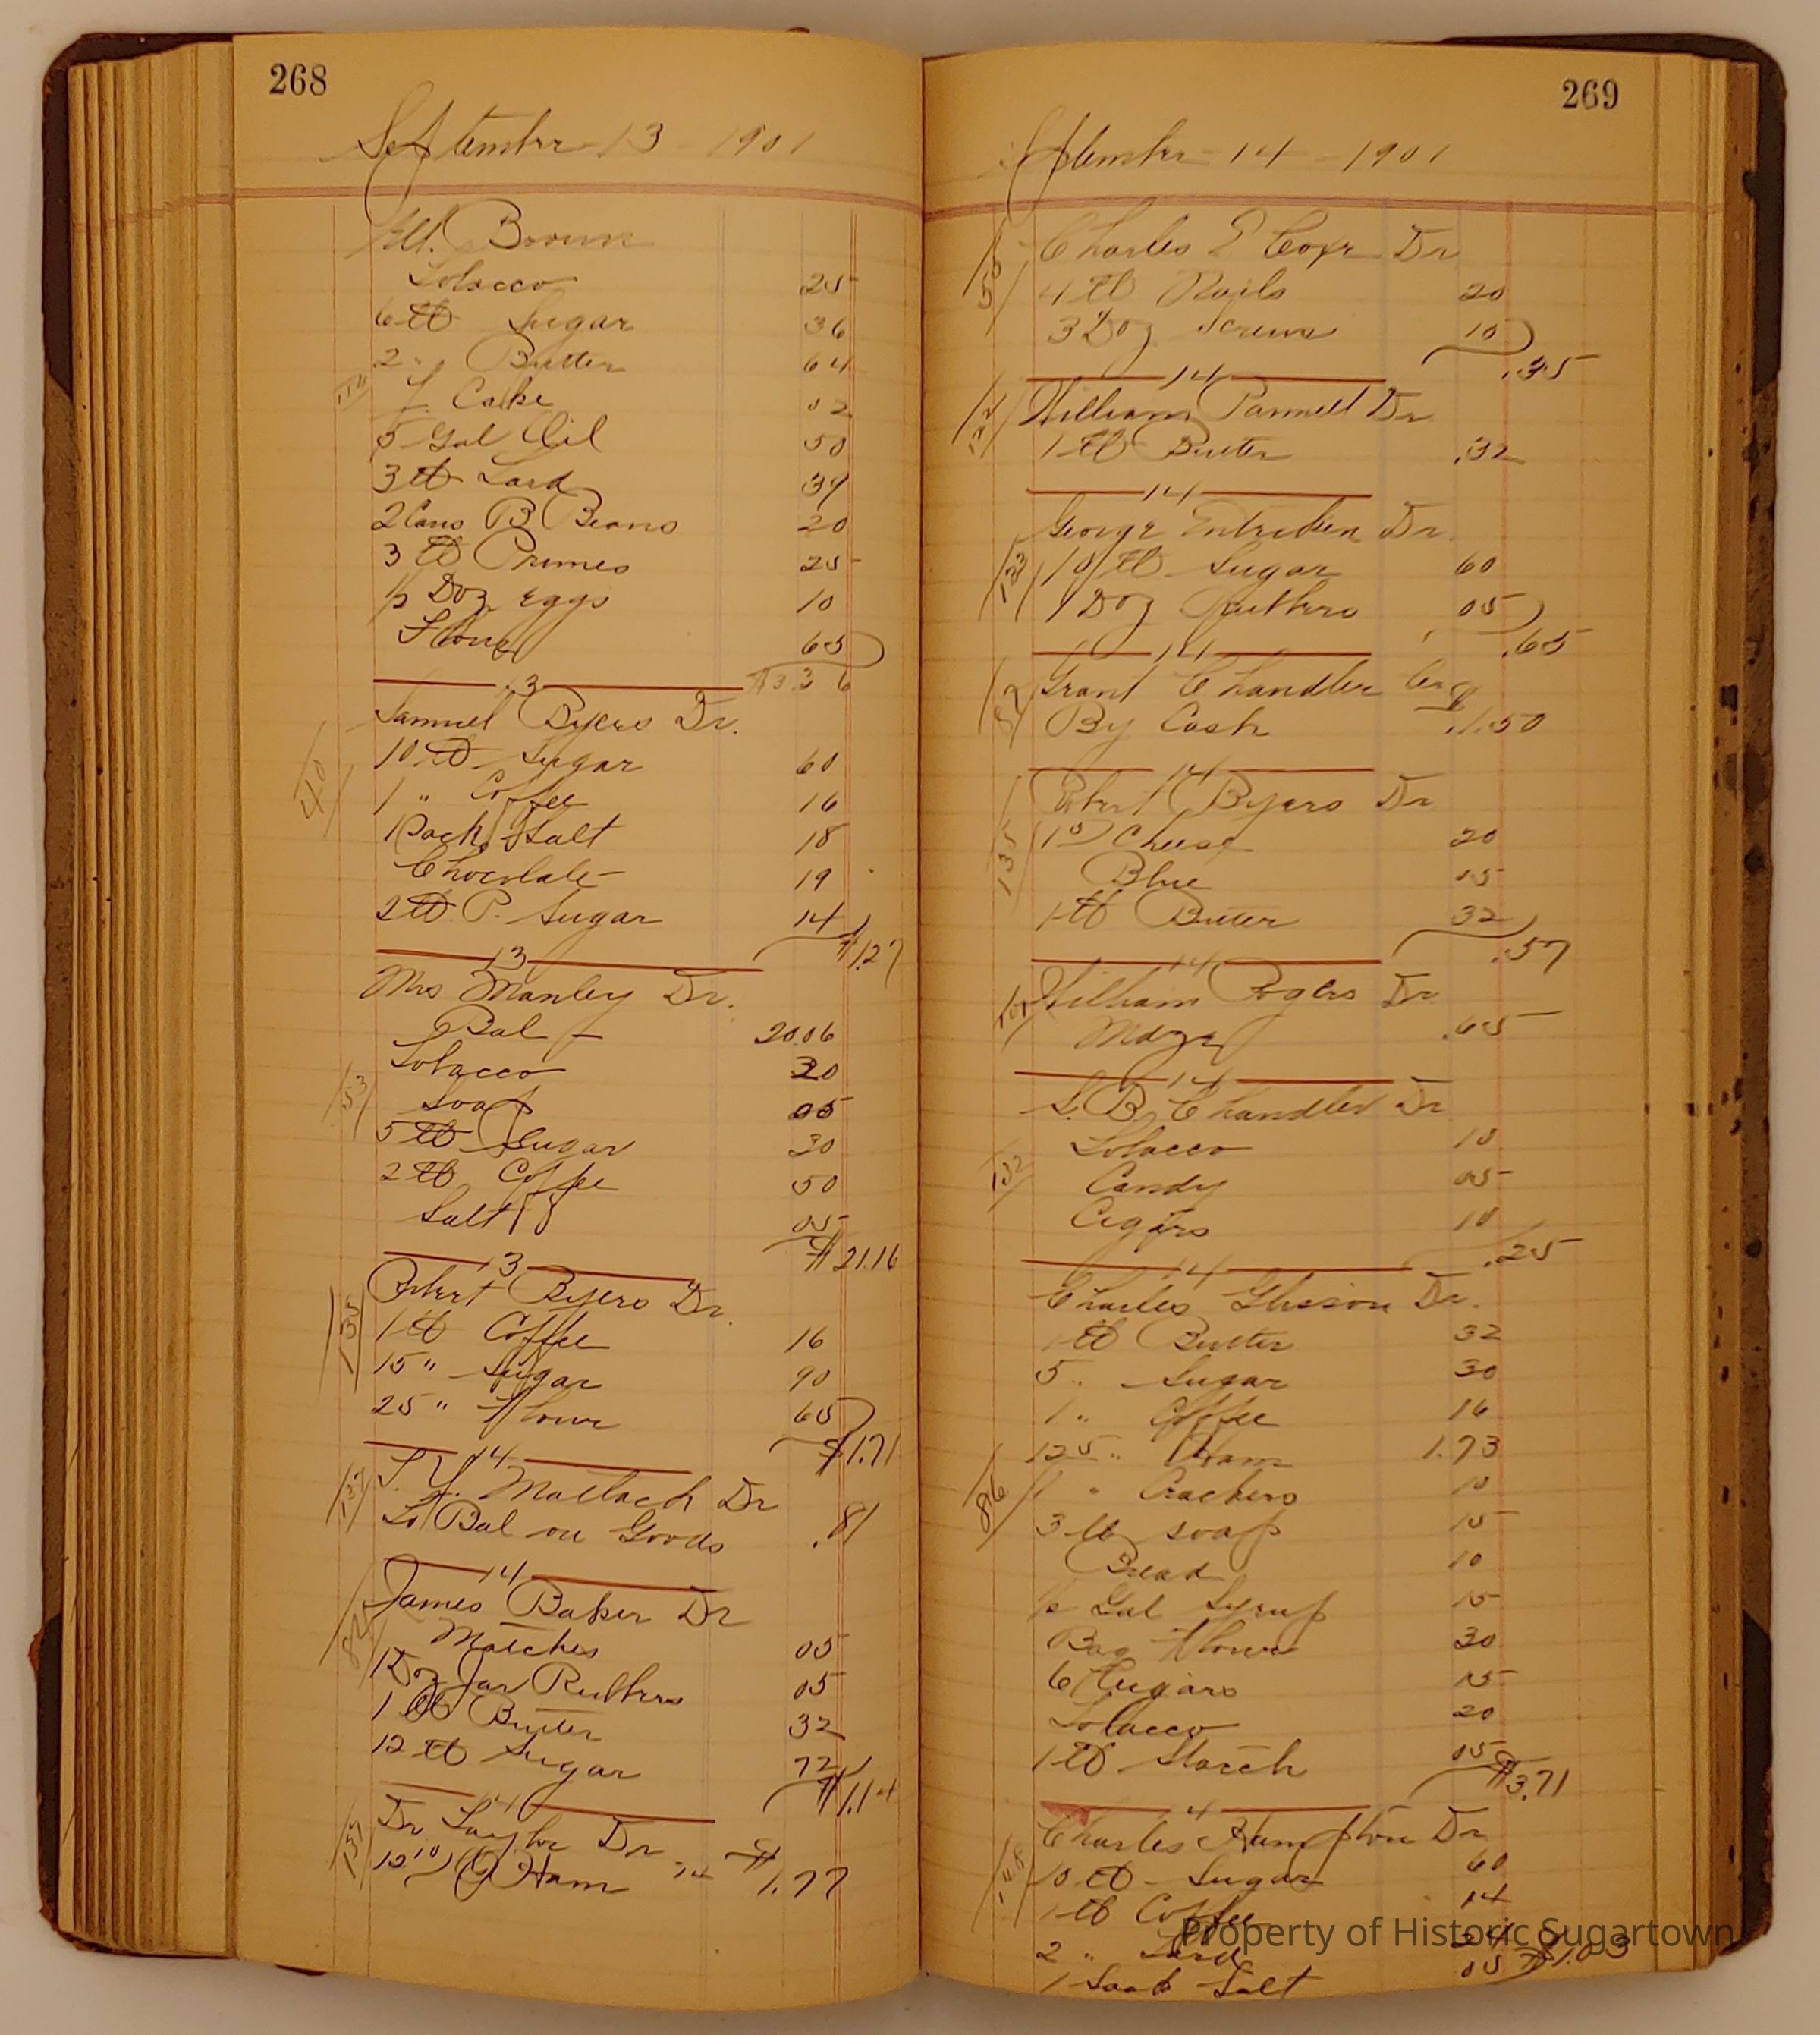 268
September 13 - 1901
Wm. Brown
Tobacco 25
6 lb Sugar 36
2 " Butter 64
Y. Cake 02
5 Gal Oil 50
3 lb Lard 39
2 Cans B Beans 20
3 lb Prunes 25
1/2 Doz Eggs 10
Flour 65
13 $3.36
Samuel Byers Dr.
40
10 lb Sugar 60
1 " Coffee 16
1 Sack Salt 18
Chocolate 19
2 lb P. Sugar 14
13 $1.27
Mrs Manley Dr.
Bal - 20.06
Tobacco 20
53
Soap 05
5 lb Sugar 30
2 lb Coffee 50
Salt 05
$21.16
13
Robert Byers Dr.
135
1 lb Coffee 16
15 " Sugar 90
25 " Flour 65
14 $1.71
Matlack Dr
To Bal on Goods .81
14
James Baker Dr
Matches 05
1 Doz Jar Rubbers 05
1 lb Butter 32
12 lb Sugar 72
14 $1.14
Dr Taylor Dr
Ham 14 $1.77
269
September - 14 - 1901
Charles E Cope Dr
4 lb Nails 20
3 Doz Screws 15
.35
14
William Pannell Dr
1 lb Butter .32
14
George Entriken Dr
133
10 lb Sugar 60
1 Doz Rubbers 05
14 .65
Grant Chandler Cr
82
By Cash 1.50
14
Robert Byers Dr
135
Cheese 20
Blue 05
1 lb Butter 32
14 .57
William Rogers Dr
Meal .65
14
S. B. Chandler Dr
132
Tobacco 10
Candy 05
Cigars 10
14 .25
Charles Glisson Dr.
1 lb Butter 32
5 " Sugar 30
1 " Coffee 16
12 5 " Ham 1.73
86
1 " Crackers 10
3 lb Soap 15
Bread 10
1/2 Gal Syrup 15
Bag Flour 30
6 Cugars 15
Tobacco 20
1 lb Starch 05
$3.71
14
Charles Hampton Dr
148
10 lb Sugar 60
1 lb Coffee 14
2 " Lard 24
1 Sack Salt 05 $1.03
Property of Historic Sugartown